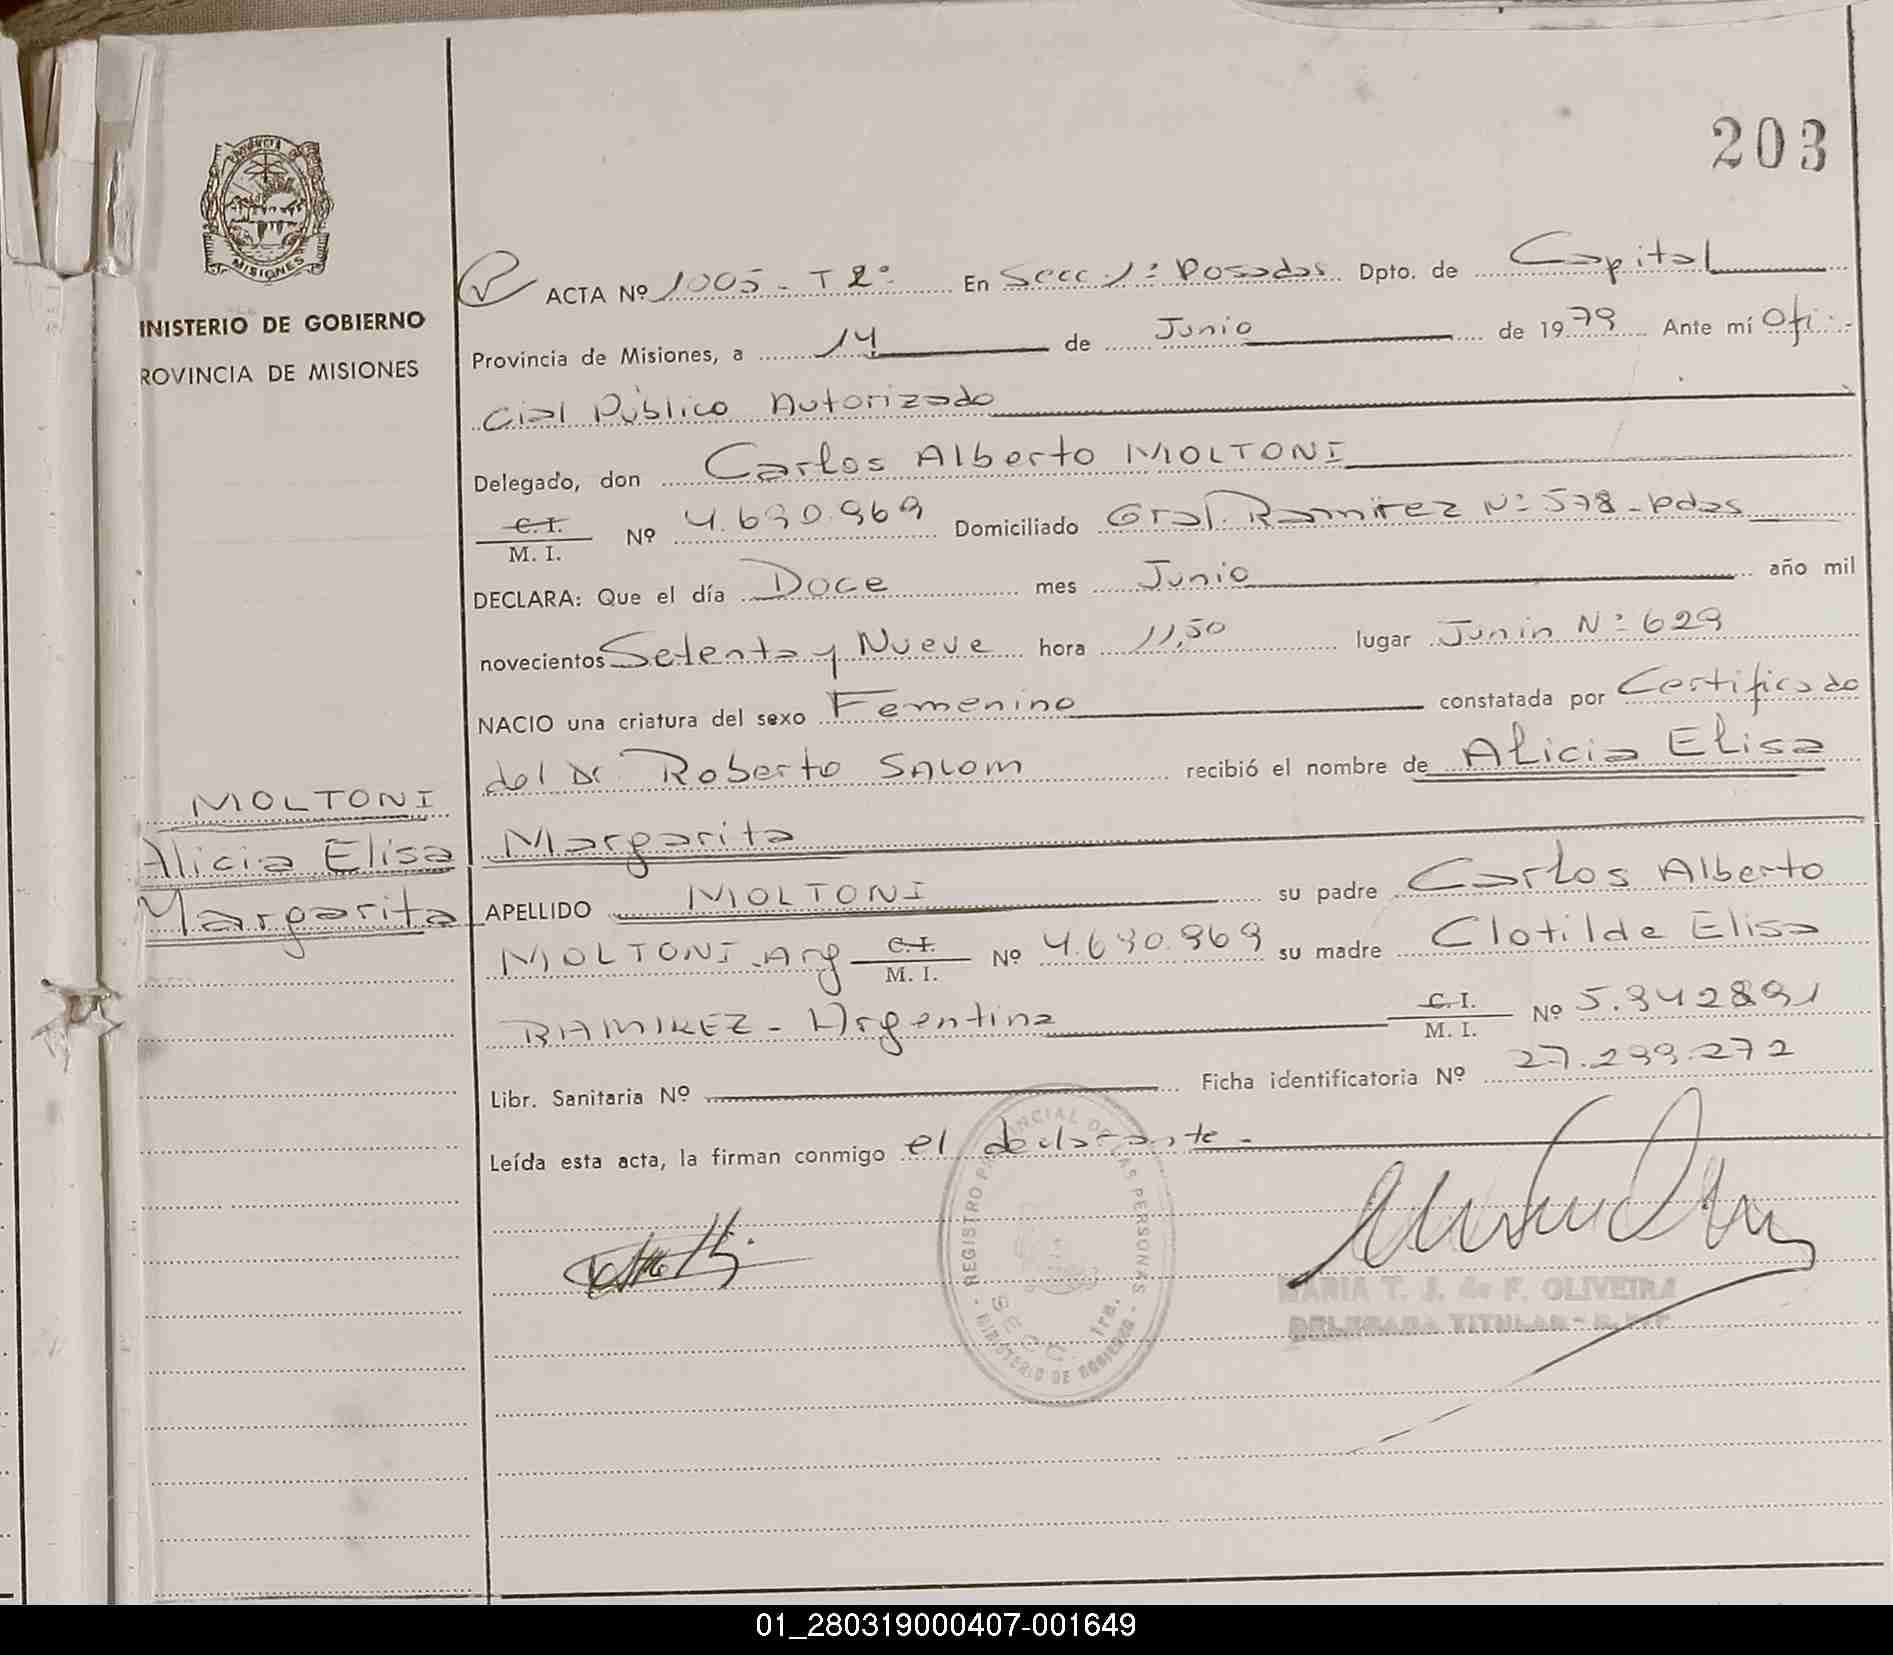 203
PROVINCIA DE
MISIONES
INISTERIO DE GOBIERNO
ROVINCIA DE MISIONES
ACTA Nº 1005 - T 2º En Secc 1ª Posadas Dpto. de Capital
Provincia de Misiones, a 14 de Junio de 1979 Ante mí Ofi-
cial Público Autorizado
Delegado, don Carlos Alberto MOLTONI
C.I.
M. I. Nº 4.690.969 Domiciliado Gral. Ramirez Nº 578 - Pdas
DECLARA: Que el día Doce mes Junio año mil
novecientos Setenta y Nueve hora 11,50 lugar Junin Nº 629
NACIO una criatura del sexo Femenino constatada por Certificado
del Dr. Roberto SALOM recibió el nombre de Alicia Elisa
Margarita
APELLIDO MOLTONI su padre Carlos Alberto
MOLTONI - Arg C.I.
M. I. Nº 4.690.969 su madre Clotilde Elisa
RAMIREZ - Argentina C.I.
M. I. Nº 5.942891
Libr. Sanitaria Nº Ficha identificatoria Nº 27.299.272
Leída esta acta, la firman conmigo el declarante -
MOLTONI
Alicia Elisa
Margarita
REGISTRO PROVINCIAL DE LAS PERSONAS
SECC. 1ra.
- MINISTERIO DE GOBIERNO -
MARIA T. J. de F. OLIVEIRA
DELEGADA TITULAR -
01_280319000407-001649